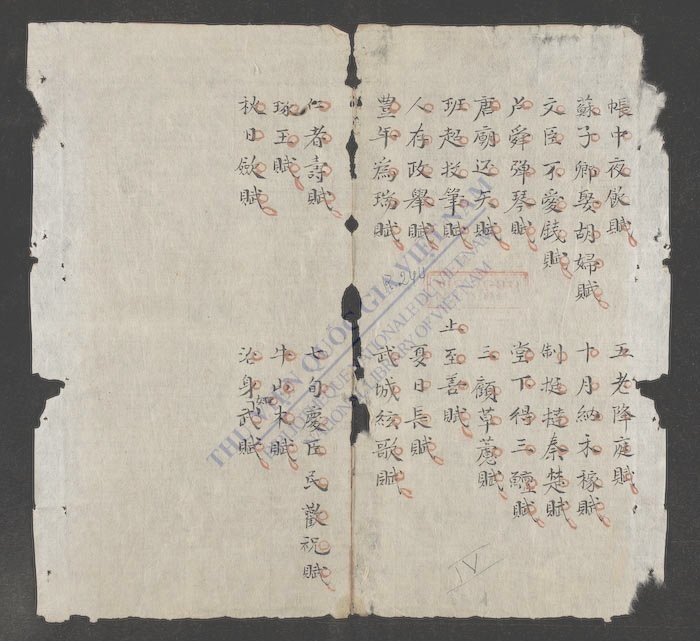 帳中夜飲賦
五老降庭賦
蘇子卿娶胡婦賦
十月納禾稼賦
文臣不愛錢賦
制挺撻秦楚賦
虞舜彈琴賦
堂下得三鱣賦
唐廟还矢賦
三顧草廬賦
班超投筆賦
止至善賦
人存政舉賦
夏日長賦
豐年為瑞賦
武城絃歌賦
仁者壽賦
七旬慶臣民歡祝賦
琢玉賦
牛山木賦
秋日歛賦
治身如武賦
THƯ VIỆN QUỐC GIA VIỆT NAM
BIBLIOTHÈQUE NATIONALE DU VIETNAM
NATIONAL LIBRARY OF VIETNAM
IV